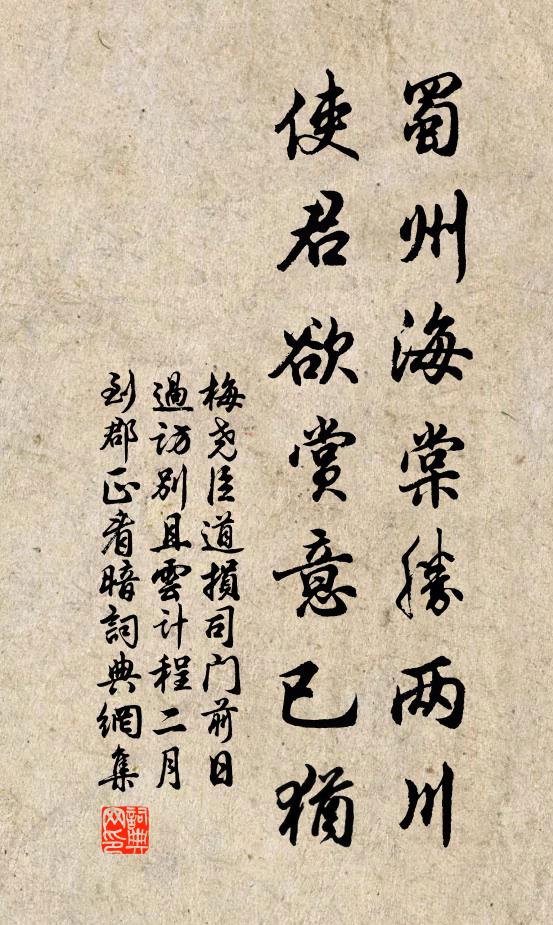 蜀州海棠勝两川
使君欲赏意已猶
梅尧臣道損司门前日
過访别且雲计程二月
到郡正看暗詞典網集
詞典網印